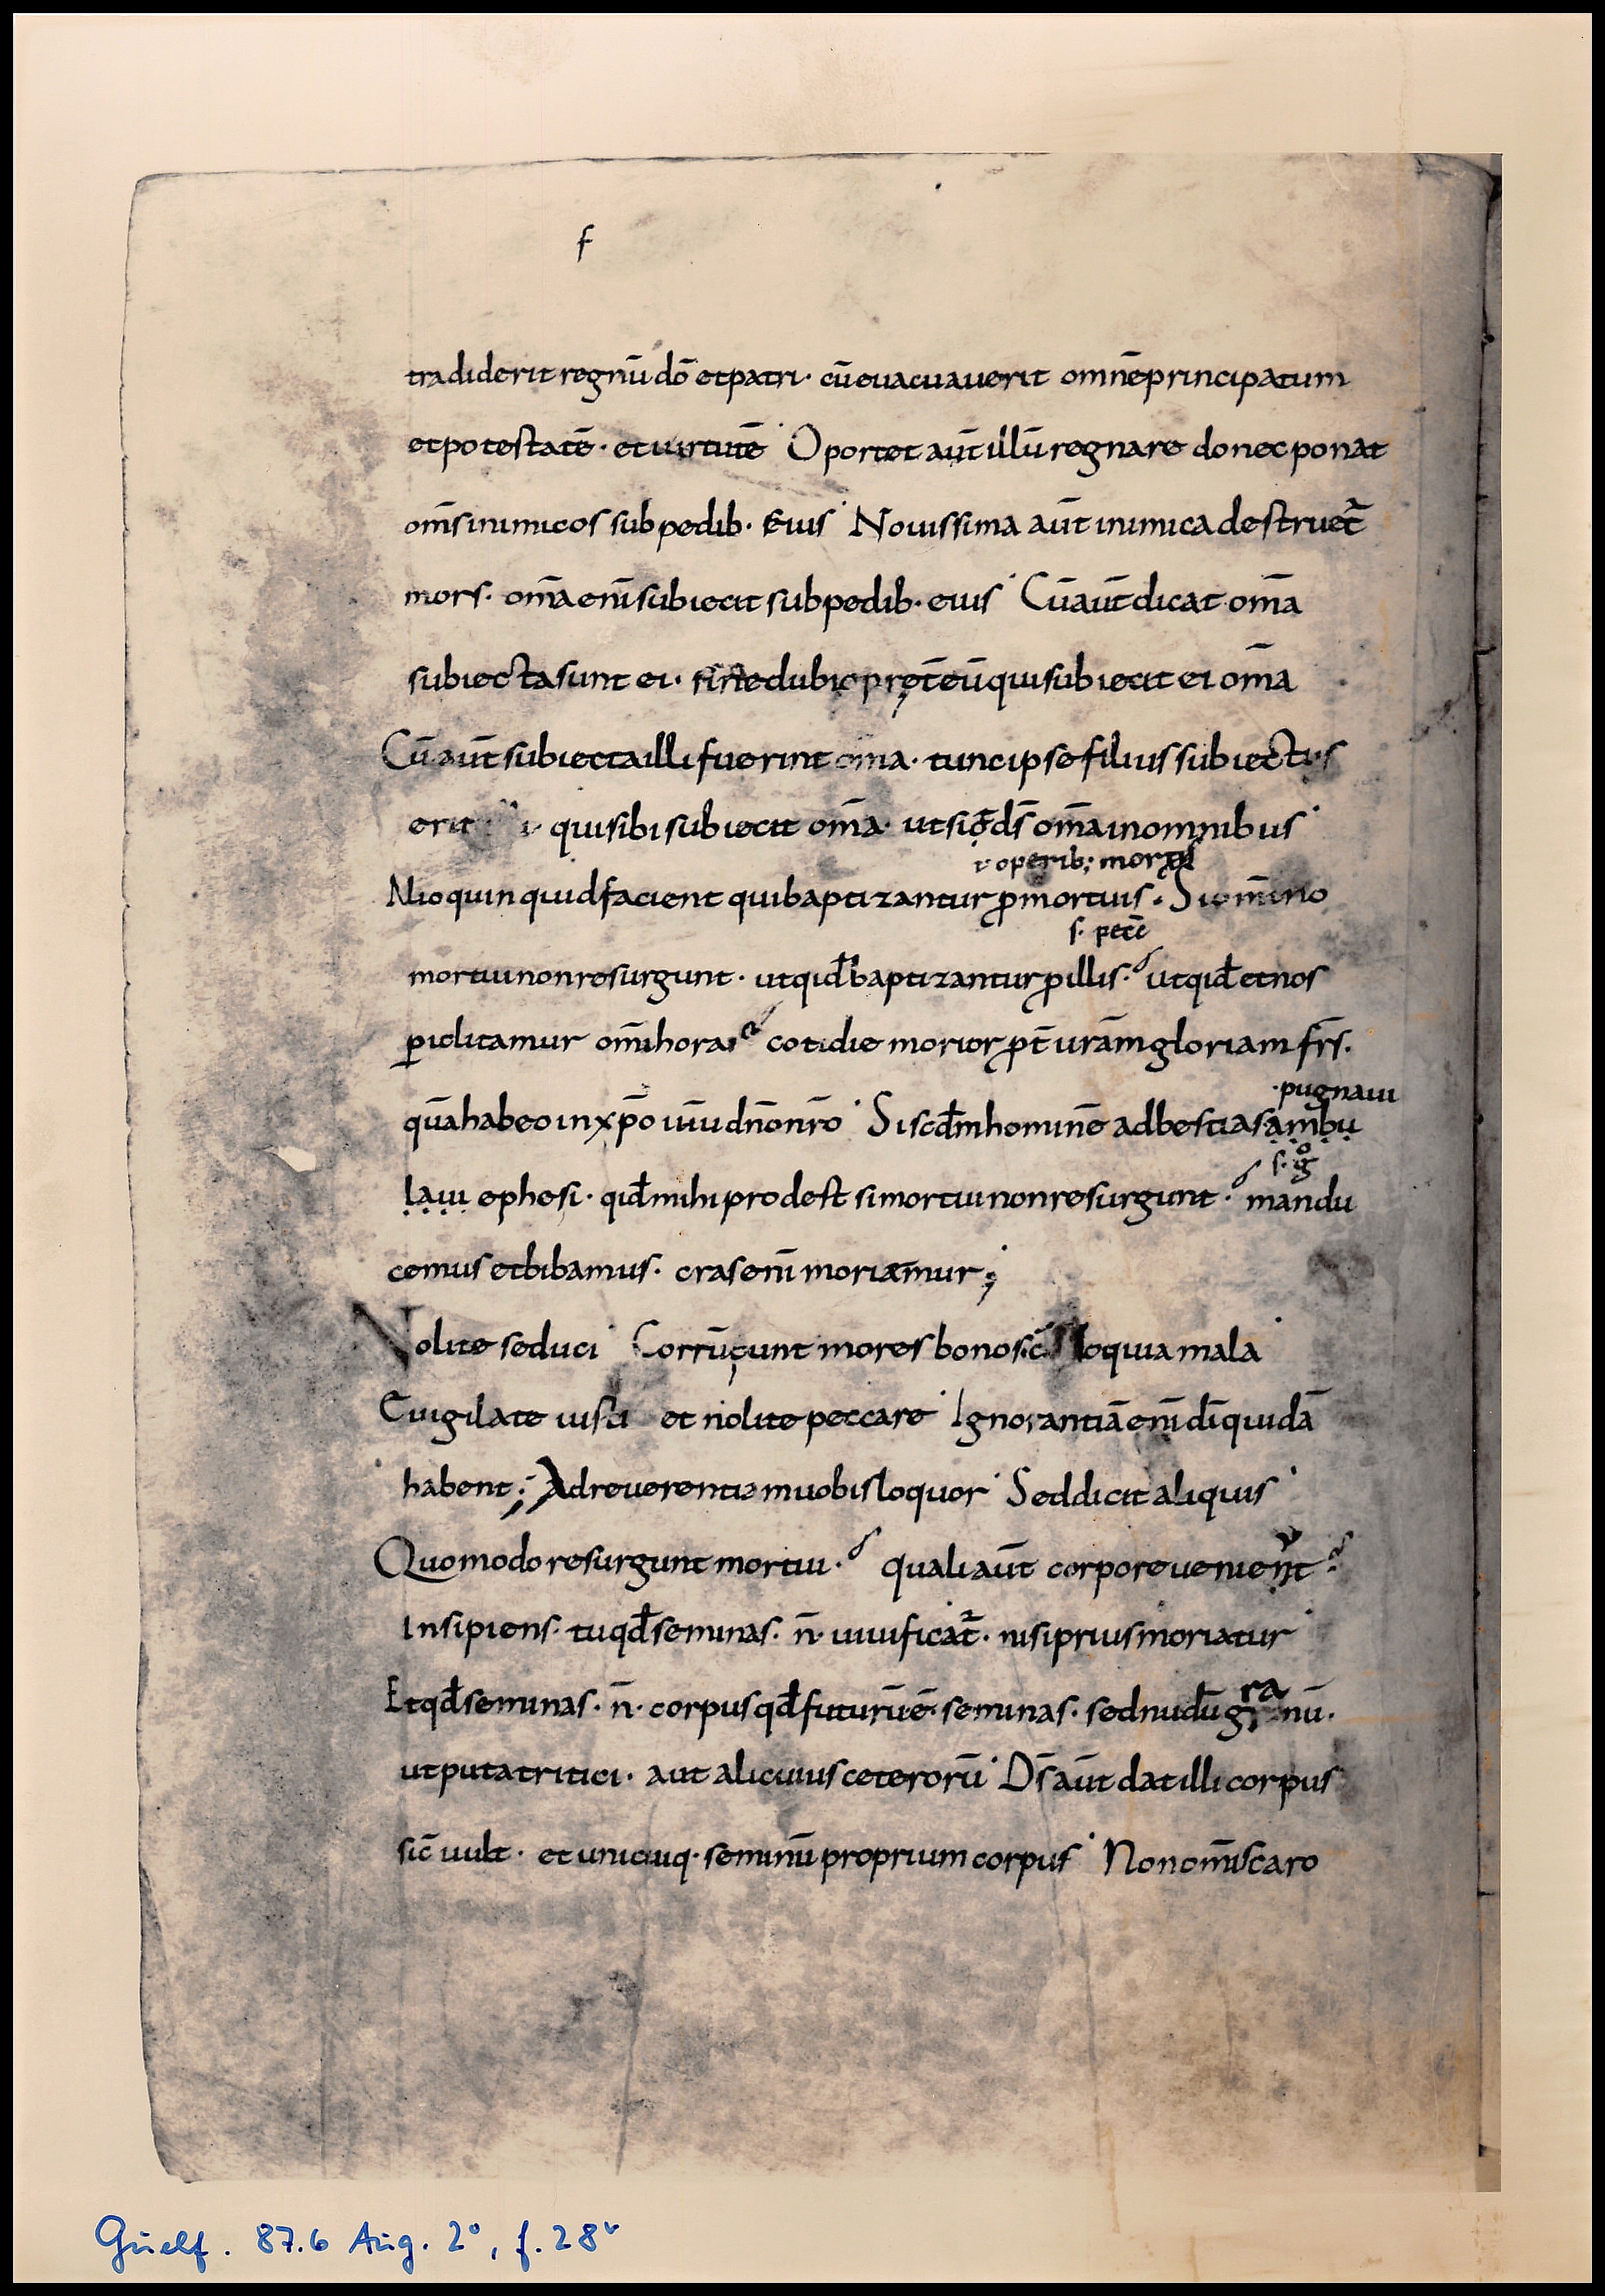 f
tradiderit regnū dō et patri · cū euacuauerit omnē principatum
et potestatē · et uirtutē Oportet aūt illū regnare donec ponat
om̄s inimicos sub pedib· eius Nouissima aūt inimica destruet̄
mors · om̄a eni̅ subiecit sub pedib· eius Cū aūt dicat om̄a
subiecta sunt ei · sine dubio pręt̄ eū qui subiecit ei om̄a
Cū aūt subiecta illi fuerint om̄a · tunc ipse filius subiectus
erit qui sibi subiecit om̄a · ut sit ds̄ om̄a in omnibus
i· operib; mort
Alioquin quid facient qui baptizantur ꝓ mortuis · Si om̄ino
s· pecē
mortui non resurgunt · ut qid̄ baptizantur ꝓ illis · ut qid̄ et nos
ꝑiclitamur om̄i hora cotidie morior ꝓt̄ urām gloriam frs̄ ·
pugnaui
quā habeo in xp̄o iū dn̄o nr̄o Si scd̄m hominē ad bestias ambu
s· g̊
laui ephesi · qid̄ mihi prodest si mortui non resurgunt · mandu
cemus et bibamus · cras eni̅ moriamur ;
Nolite seduci Corrūpunt mores bonos loquia mala
Euigilate iusti et nolite peccare Ignorantiā eni̅ dī quidā
habent ; Ad reuerentiam uobis loquor Sed dicit aliquis
Quomodo resurgunt mortui · quali aūt corpore uenient
Insipiens · tu qd̄ seminas · n̄ · uiuificat̄ · nisi prius moriatur
Et qd̄ seminas · n̄ · corpus qd̄ futurū ē · seminas · sed nudū granū ·
ut puta tritici · aut alicuius ceterorū Ds̄ aūt dat illi corpus
sic̄ uult · et unicuiq· seminū proprium corpus Non om̄is caro
Guelf. 87.6 Aug. 2°, f. 28ᵛ